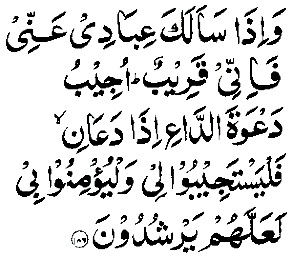 وَاِذَا سَاَلَكَ عِبَادِىْ عَنِّىْ
فَاِنِّىْ قَرِيْبٌ ؕ اُجِيْبُ
دَعْوَةَ الدَّاعِ اِذَا دَعَانِ ۙ
فَلْيَسْتَجِيْبُوْا لِىْ وَلْيُؤْمِنُوْا بِىْ
لَعَلَّهُمْ يَرْشُدُوْنَ ﴿۱۸۶﴾